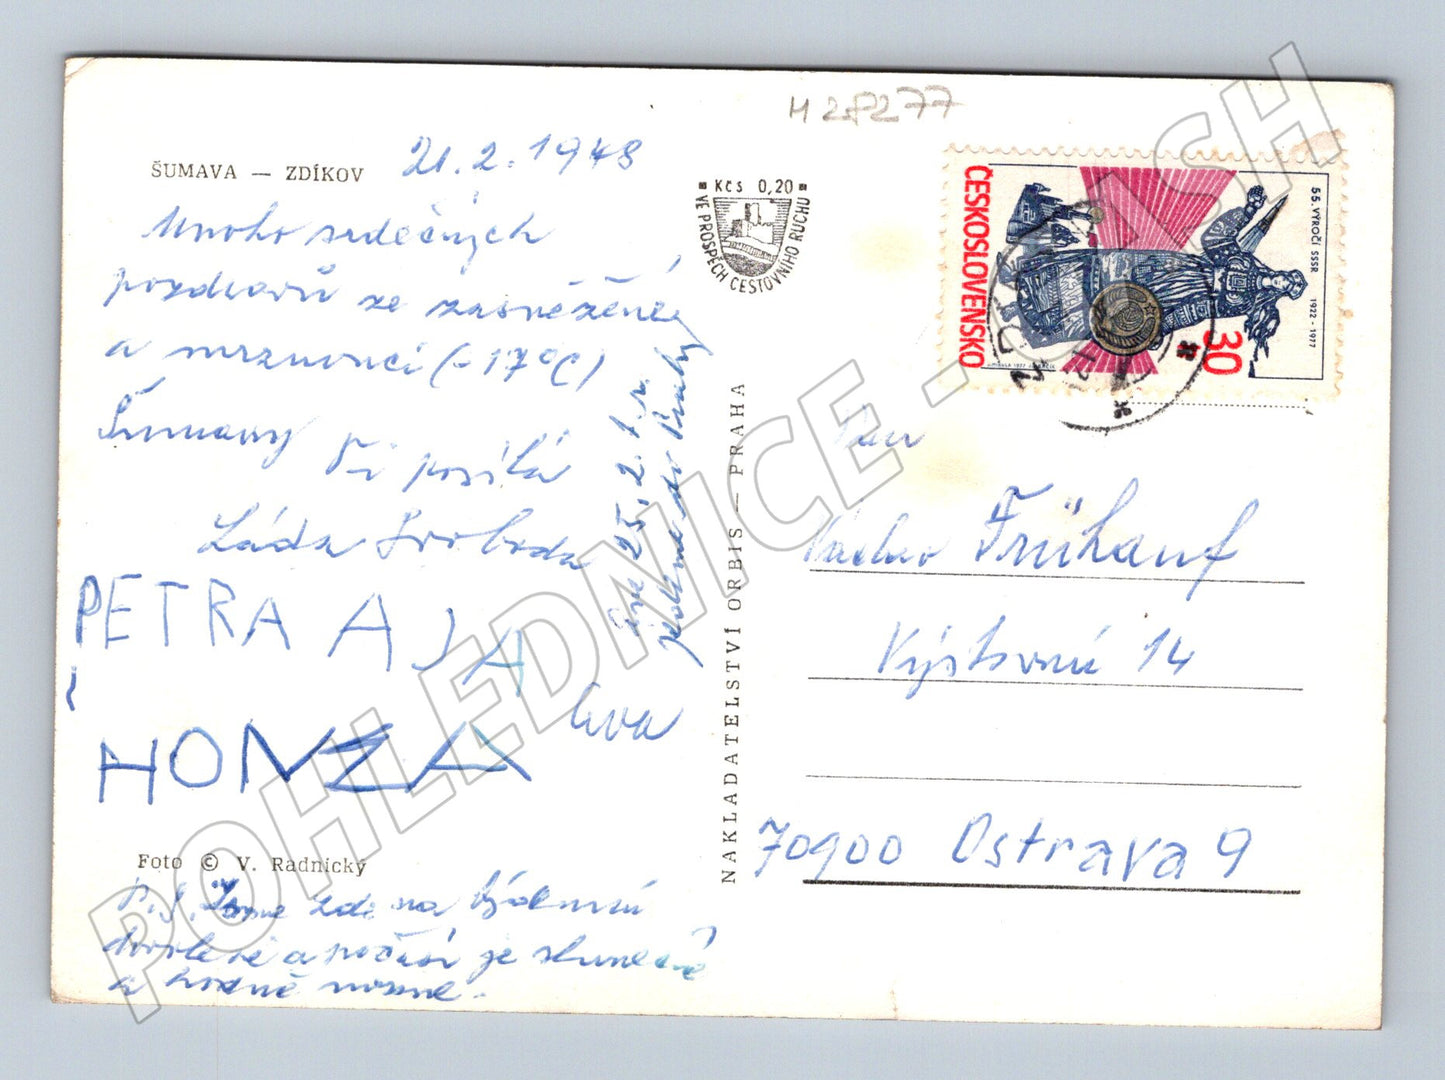 H28277
ŠUMAVA — ZDÍKOV
21.2.1978
Mnoho srdečných
pozdravů ze zasněžené
a mrznoucí (-17°C)
Šumavy Ti posílá
Láďa Svoboda
PETRA AJA
Eva
HONZA
Foto © V. Radnický
P.S. Jsme zde na týdenní
dovolené a počasí je slunečné
a hodně mrzne.
Dne 25.2. t.r.
jedeme do Prahy
Kčs 0,20
VE PROSPĚCH CESTOVNÍHO RUCHU
NAKLADATELSTVÍ ORBIS — PRAHA
ČESKOSLOVENSKO
55. VÝROČÍ SSSR 1922 - 1977
30
Pan
Václav Frühauf
Výstavní 14
70900 Ostrava 9
POHLEDNICE - CASH